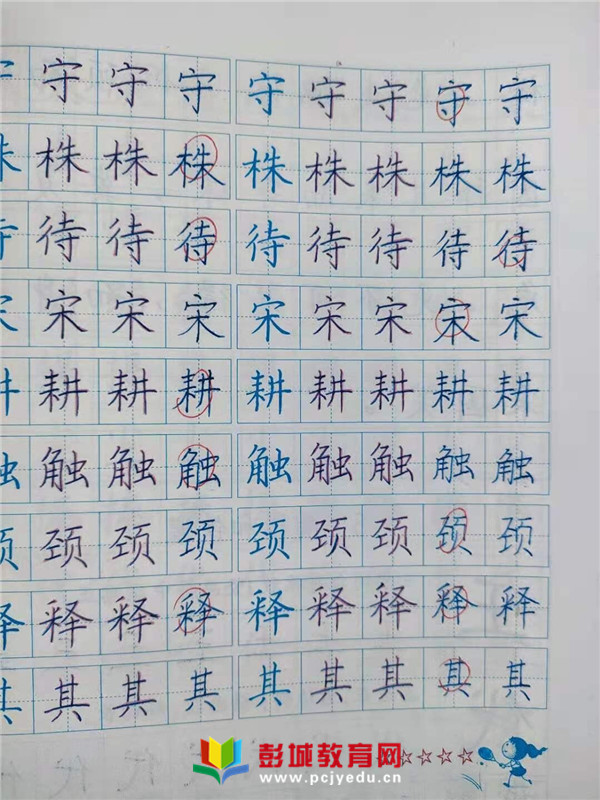 守 守 守 守 守 守 守 守 守
株 株 株 株 株 株 株 株 株
待 待 待 待 待 待 待 待 待
宋 宋 宋 宋 宋 宋 宋 宋 宋
耕 耕 耕 耕 耕 耕 耕 耕 耕
触 触 触 触 触 触 触 触 触
颈 颈 颈 颈 颈 颈 颈 颈 颈
释 释 释 释 释 释 释 释 释
其 其 其 其 其 其 其 其 其
彭城教育网
www.pcjyedu.cn